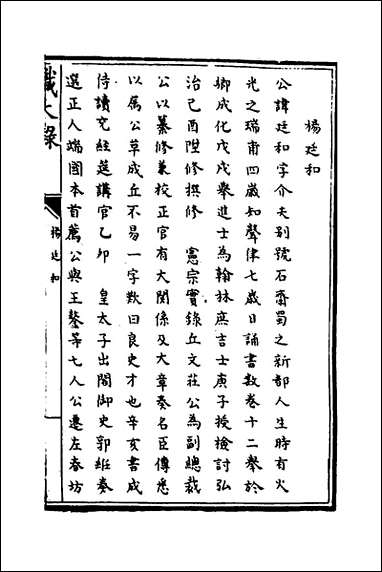 楊廷和
公諱廷和字介夫別號石齋蜀之新都人生時有火
光之瑞甫四歲知聲律七歲日誦書數卷十二舉於
鄉成化戊戌舉進士為翰林庶吉士庚子授檢討弘
治己酉陞修撰修　憲宗實錄丘文莊公為副總裁
公以纂修兼校正官有大關係及大章奏名臣傳悉
以屬公草成丘不易一字歎曰良史才也辛亥書成
侍讀充經筵講官乙卯　皇太子出閣御史郭絍奏
選正人端國本首薦公與王鏊等七人公遷左春坊
獻大錄
楊廷和